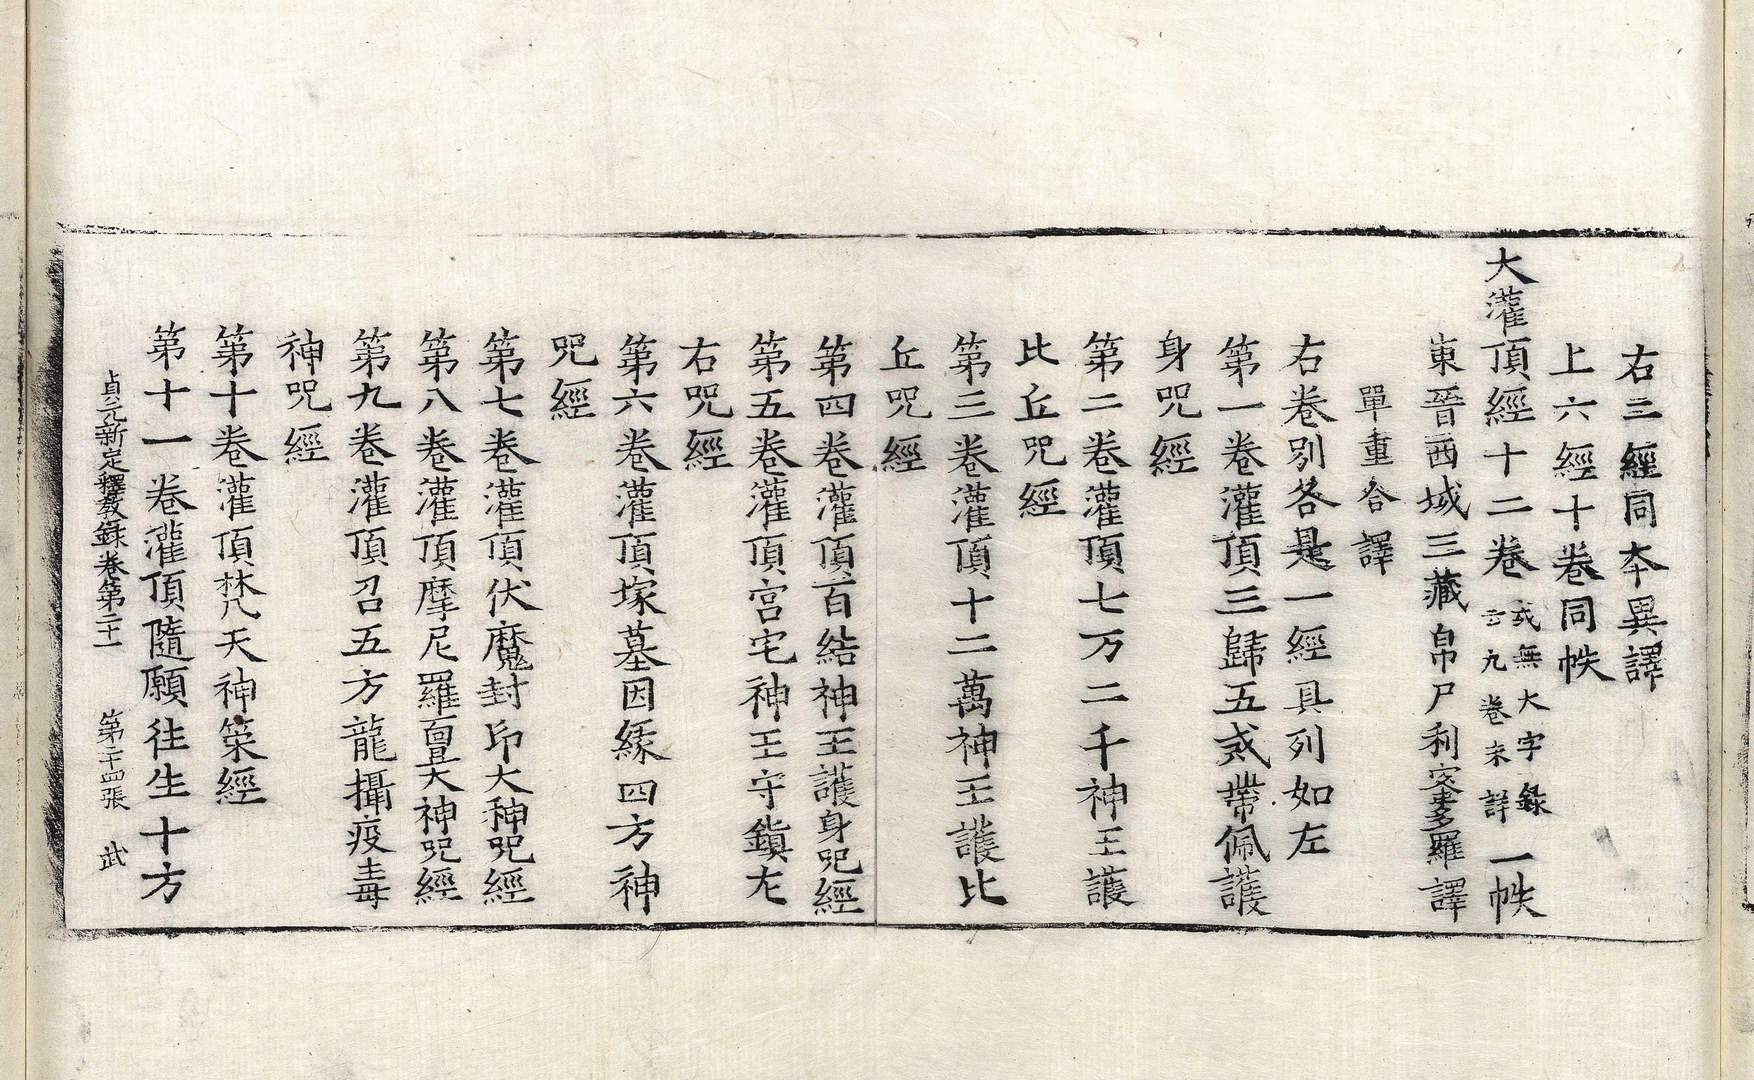 右三經同本異譯
上六經十卷同帙
大灌頂經十二卷或無大字錄云九卷未詳一帙
東晉西域三藏帛尸利密多羅譯
單重合譯
右卷別各是一經具列如左
第一卷灌頂三歸五戒帶佩護
身咒經
第二卷灌頂七万二千神王護
比丘咒經
第三卷灌頂十二萬神王護比
丘咒經
第四卷灌頂百結神王護身咒經
第五卷灌頂宮宅神王守鎮左
右咒經
第六卷灌頂塚墓因緣四方神
咒經
第七卷灌頂伏魔封印大神咒經
第八卷灌頂摩尼羅亶大神咒經
第九卷灌頂召五方龍攝疫毒
神咒經
第十卷灌頂梵天神策經
第十一卷灌頂隨願往生十方
貞元新定釋教錄卷第二十一 第二十四張 武